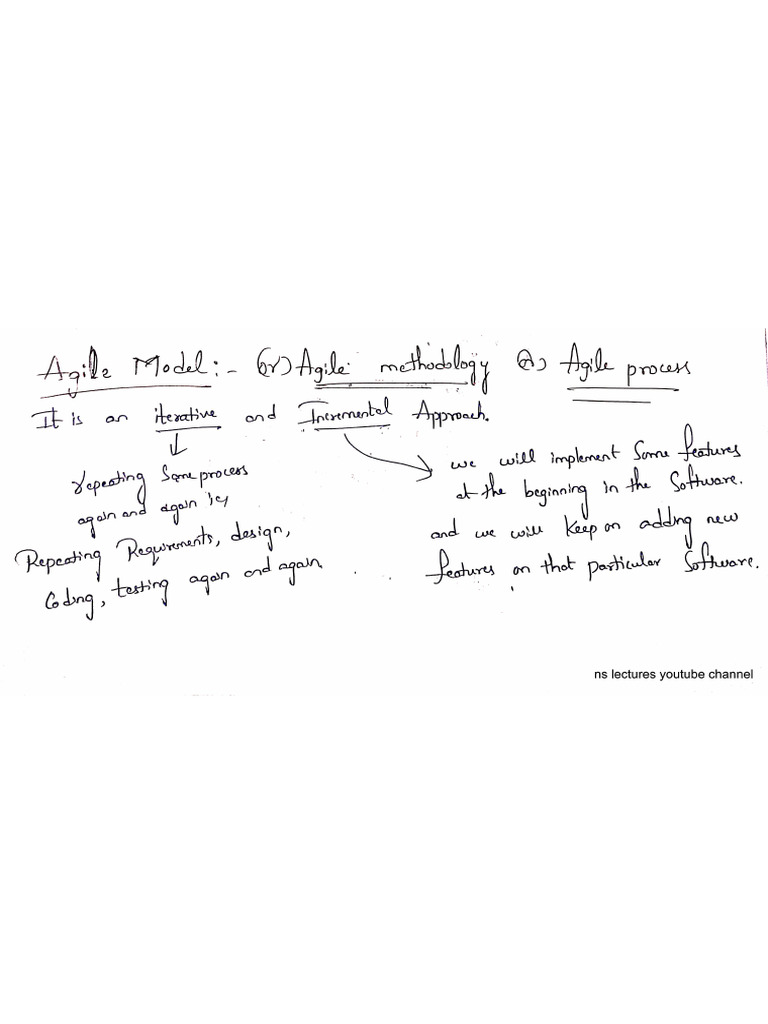 Agile Model:- (or) Agile methodology (or) Agile process
It is an iterative and Incremental Approach.
repeating Same process
again and again ie,
Repeating Requirements, design,
Coding, testing again and again.
we will implement Some features
at the beginning in the Software.
and we will Keep on adding new
features on that particular Software.
ns lectures youtube channel